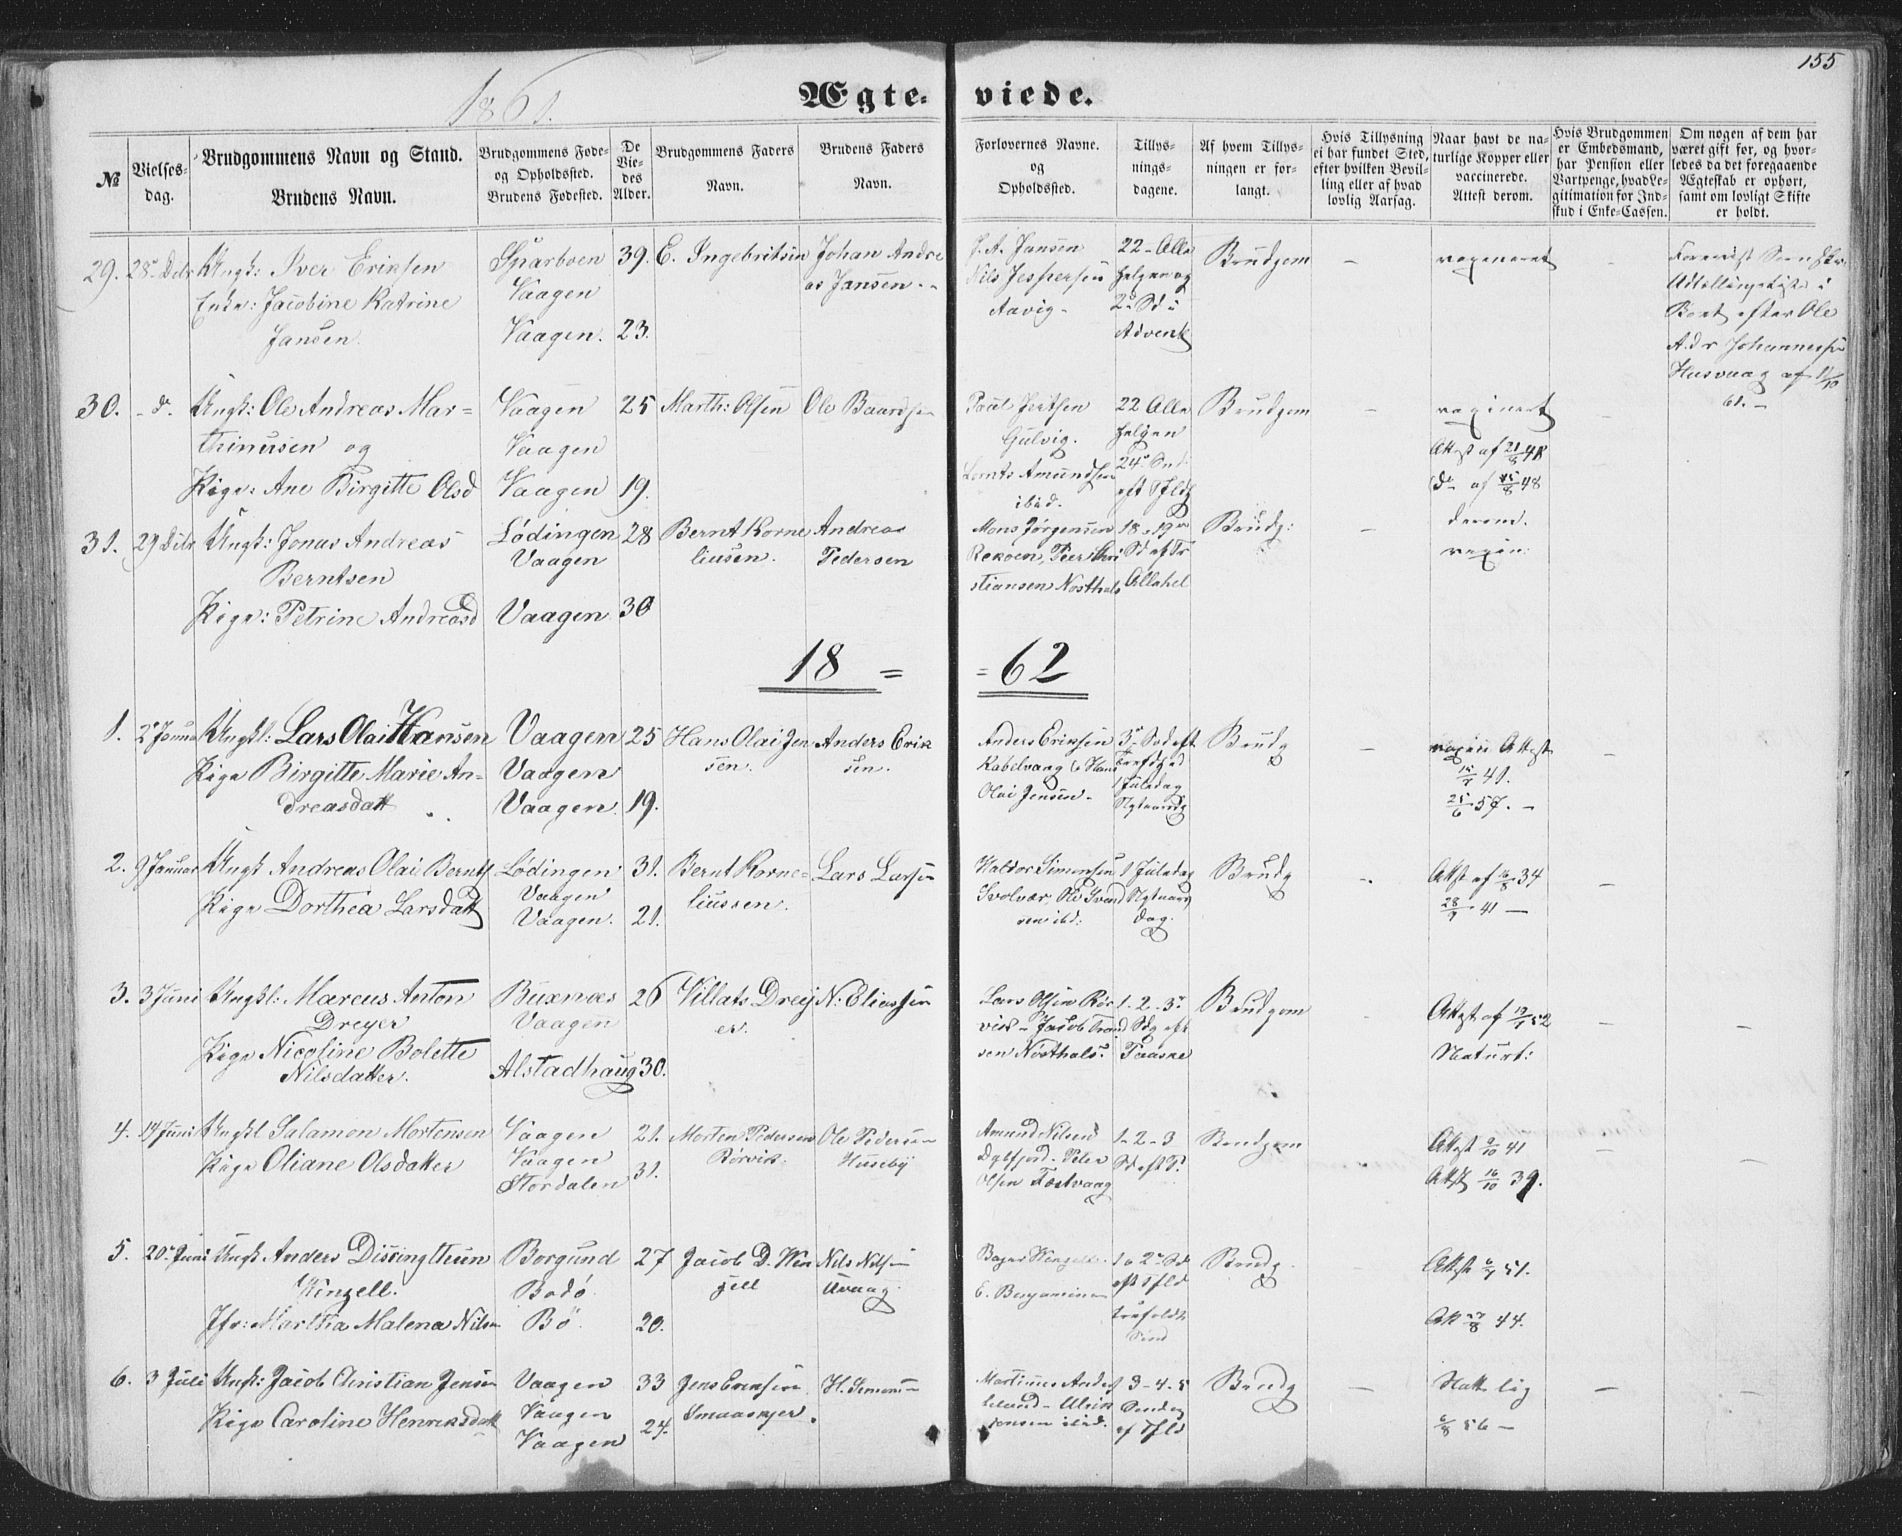 155
1861.
Ægte- viede.
№
Vielses-
dag.
Brudgommens Navn og Stand.
Brudens Navn.
Brudgommens Føde-
og Opholdssted.
Brudens Fødested.
De
Vie-
des
Alder.
Brudgommens Faders
Navn.
Brudens Faders
Navn.
Forlovernes Navne.
og
Opholdssted.
Tillys-
nings-
dagene.
Af hvem Tillys-
ningen er for-
langt.
Hvis Tillysning
ei har fundet Sted,
efter hvilken Bevil-
ling eller af hvad
lovlig Aarsag.
Naar havt de na-
turlige Kopper eller
vaccinerede.
Attest derom.
Hvis Brudgommen
er Embedsmand,
har Pension eller
Vartpenge, hvad Le-
gitimation for Ind-
skud i Enke-Cassen.
Om nogen af dem har
været gift før, og hvor-
ledes da det foregaaende
Ægteskab er ophørt,
samt om lovligt Skifte
er holdt.
29. 28de Dcbr Ungk: Iver Eriksen
Enke: Jacobine Katrine
Jansen.
Sparboen
Vaagen
Vaagen.
39.
23.
E. Ingebritsen
Johan Andre
as Jansen
J. A. Jansen
Nils Jespersen
Aavig
22 - Alle
helgen og
2 Sd i
Advent
Brudgom
vaxeneret
Boet efter Ole
Adr Johannessen
Husvaag af 11/10
61.
30. - d. Ungk: Ole Andreas Mar=
thinusen og
Pige: Ane Birgitte Olsd
Vaagen
Vaagen
Vaagen
25
19.
Marth: Olsen
Ole Baardsen
Gulvig.
Lornts Amundsen
ibid.
22 Alle
helgen
Brudgom
vaxineret
Attst af 21/8 48
do af 15/8 48
31. 29 Dcbr Ungk: Jonas Andreas
Berntsen
Pige: Petrine Andreasd
Lødingen
Vaagen
Vaagen
28
30
Bernt Korne
liusen.
Andreas
Pedersen
Mons Jørgensen
stiansen Nosthals
18 - 19de
Sd ef Tr
Allehel
Brudg:
derom.
vaxin:
18 = = 62
1. 2 Januar Ungkl: Lars Olai Hansen
Pige Birgitte Marie An-
dreasdatt
Vaagen
Vaagen
Vaagen.
25
19.
Hans Olai Jen
sen.
Anders Erik
sen.
Anders Eriksen
Kabelvaag & Hans
Olai Jensen
1 Juledag
Nytaarsdg
Brudg
vaxin Attest
15/7 41.
25/6 57.
2. 9 Januar Ungk Andreas Olai Bernts
Pige Dorthea Larsdatt
Lødingen
Vaagen
Vaagen.
31.
21.
Bernt Korne=
liussen.
Lars Larsen
Haldor Simonsen
Svolvær
1 Juledag
Nytaars
dag.
Brudg
Attst af 16/8 34
28/7 41
3. 3 Juni Ungkl: Marcus Anton
Dreyer
Pige Nicoline Bolette
Nilsdatter.
Buxnæs
Vaagen
Alstadhaug
26
30.
Villats Drey
er.
N: Eliassen
Lars Olsen Rør
vik - Jacob Trond
sen Nosthals.
1 - 2 - 3
Sdg eft
Paaske
Brudgom
Attest af 52
Naturl:
4. 19 Juni Ungkl Salamon Mortensen
Pige Oliane Olsdatter
Vaagen
Vaagen
Stordalen
21.
31.
Morten Pedersen
Børvik.
Ole Pedersen
Huseby
Amund Nilsen
Dybfjord. Peter
Olsen Festvaag
1 - 2 - 3
Sd eft P.
Brudgom
Attst 9/10 41
Attst 16/10 39.
5. 20 Juni Ungk Anders Dissingthun
Winzell.
Jfr: Martha Malena Nilsen
Borgund
Bodø
Bø
27
20.
Jacob D. Win
zell
Nils Nilsen
Uvaag.
E. Benjaminsen
1 o 2 Sd
eft Tfld
Brudg
Attst 51.
Att 27/8 44.
6. 3 Juli Ungk: Jacob Christian Jensen
Pige Caroline Henriksdatt
Vaagen
Vaagen
Vaagen
33
24.
Jens Evensen
Smaaskjer.
H. Simonsen
jensen ibid.
3 - 4 - 5
Søndag
ef Tfld
Brudg
Natt lig
6/8 56